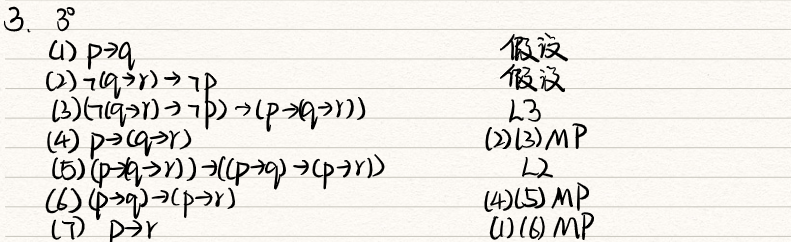 3. 3°
(1) p→q 假设
(2) ¬(q→r)→¬p 假设
(3)(¬(q→r)→¬p)→(p→(q→r)) L3
(4) p→(q→r) (2)(3)MP
(5)(p→(q→r))→((p→q)→(p→r)) L2
(6)(p→q)→(p→r) (4)(5)MP
(7) p→r (1)(6)MP